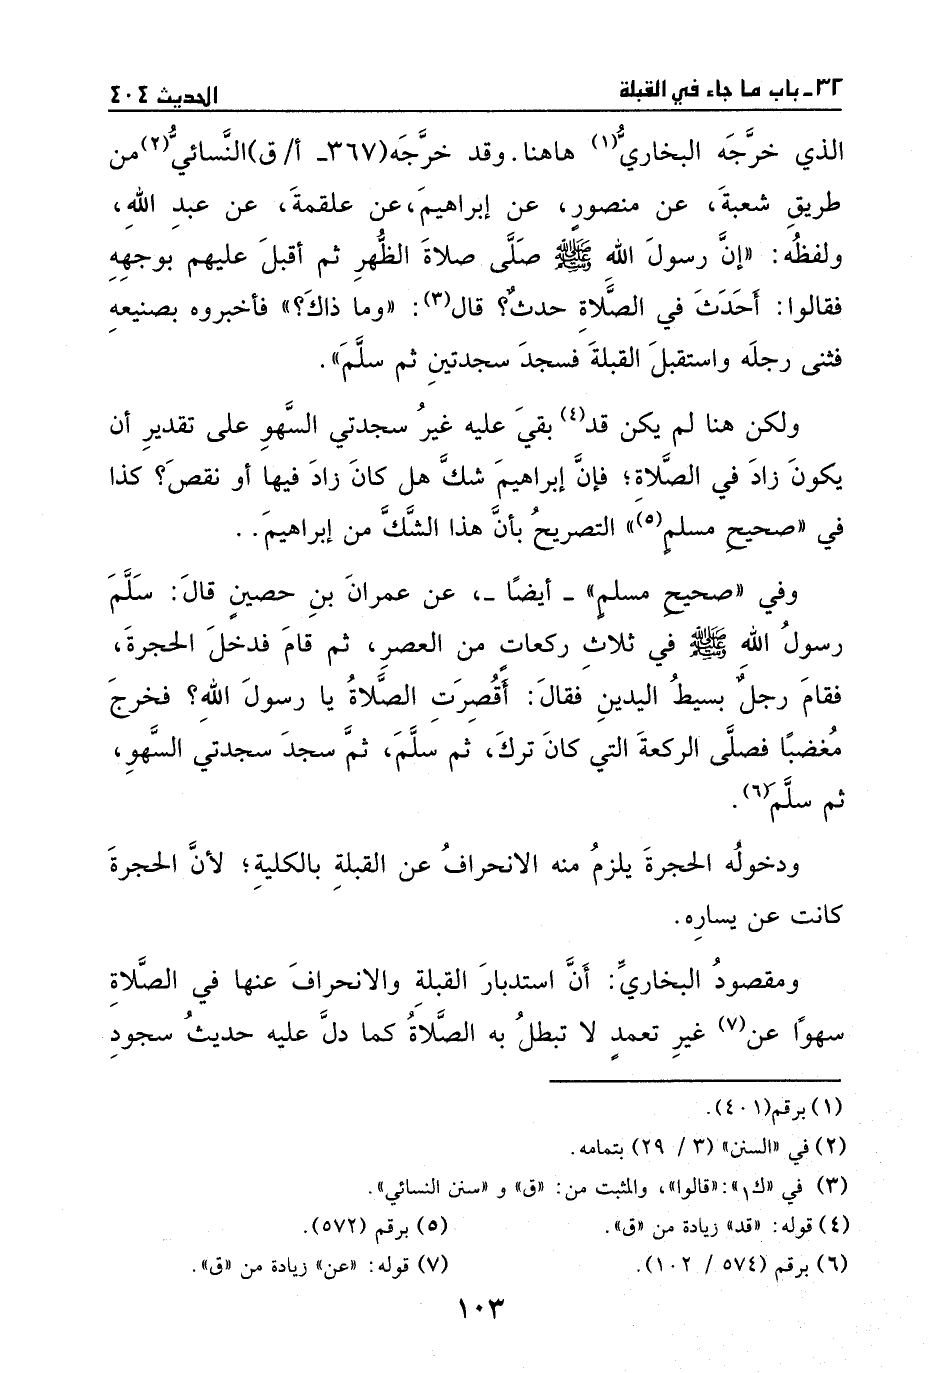 ٣٢ـ باب ما جاء في القبلة
الحديث ٤٠٤
الذي خرَّجَه البخاريُّ(١) هاهنا. وقد خرَّجَه (٣٦٧ـ أ/ ق) النَّسائيُّ(٢) من
طريقِ شعبةَ، عن منصورٍ، عن إبراهيمَ، عن علقمةَ، عن عبدِ اللهِ،
ولفظُه: «إنَّ رسولَ اللهِ ﷺ صَلَّى صلاةَ الظُّهرِ ثم أقبلَ عليهم بوجهِهِ
فقالوا: أَحَدَثَ في الصَّلاةِ حدثٌ؟ قال(٣): «وما ذاكَ؟» فأخبروه بصنيعِهِ
فثنى رجلَه واستقبلَ القبلةَ فسجدَ سجدتينِ ثم سلَّمَ».
ولكن هنا لم يكن قد(٤) بقيَ عليه غيرُ سجدتي السَّهوِ على تقديرِ أن
يكونَ زادَ في الصَّلاةِ؛ فإنَّ إبراهيمَ شكَّ هل كانَ زادَ فيها أو نقصَ؟ كذا
في «صحيحِ مسلمٍ(٥)» التصريحُ بأنَّ هذا الشَّكَّ من إبراهيمَ. .
وفي «صحيحِ مسلمٍ» ـ أيضًا ـ، عن عمرانَ بنِ حصينٍ قالَ: سَلَّمَ
رسولُ اللهِ ﷺ في ثلاثِ ركعاتٍ من العصرِ، ثم قامَ فدخلَ الحجرةَ،
فقامَ رجلٌ بسيطُ اليدينِ فقالَ: أَقُصِرَتِ الصَّلاةُ يا رسولَ اللهِ؟ فخرجَ
مُغضبًا فصلَّى الركعةَ التي كانَ تركَ، ثم سلَّمَ، ثمَّ سجدَ سجدتي السَّهوِ،
ثم سلَّمَ(٦).
ودخولُه الحجرةَ يلزمُ منه الانحرافُ عن القبلةِ بالكليةِ؛ لأنَّ الحجرةَ
كانت عن يسارِه.
ومقصودُ البخاريِّ: أنَّ استدبارَ القبلةِ والانحرافَ عنها في الصَّلاةِ
سهوًا عن(٧) غيرِ تعمدٍ لا تبطلُ به الصَّلاةُ كما دلَّ عليه حديثُ سجودِ
(١) برقم (٤٠١).
(٢) في «السنن» (٣ / ٢٩) بتمامه.
(٣) في «ك١»: «قالوا»، والمثبت من: «ق» و «سنن النسائي».
(٤) قوله: «قد» زيادة من «ق». (٥) برقم (٥٧٢).
(٦) برقم (٥٧٤ / ١٠٢). (٧) قوله: «عن» زيادة من «ق».
١٠٣